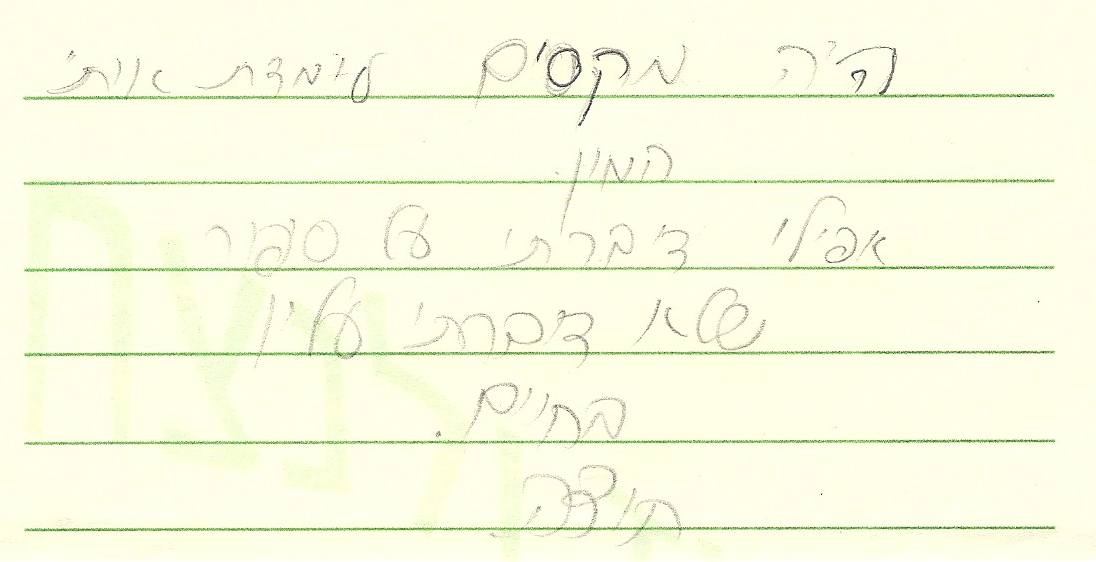 היה מקסים לימדת אותי
המון.
אפילו דיברתי על ספור
שלא דיברתי עליו
בחיים.
תודה